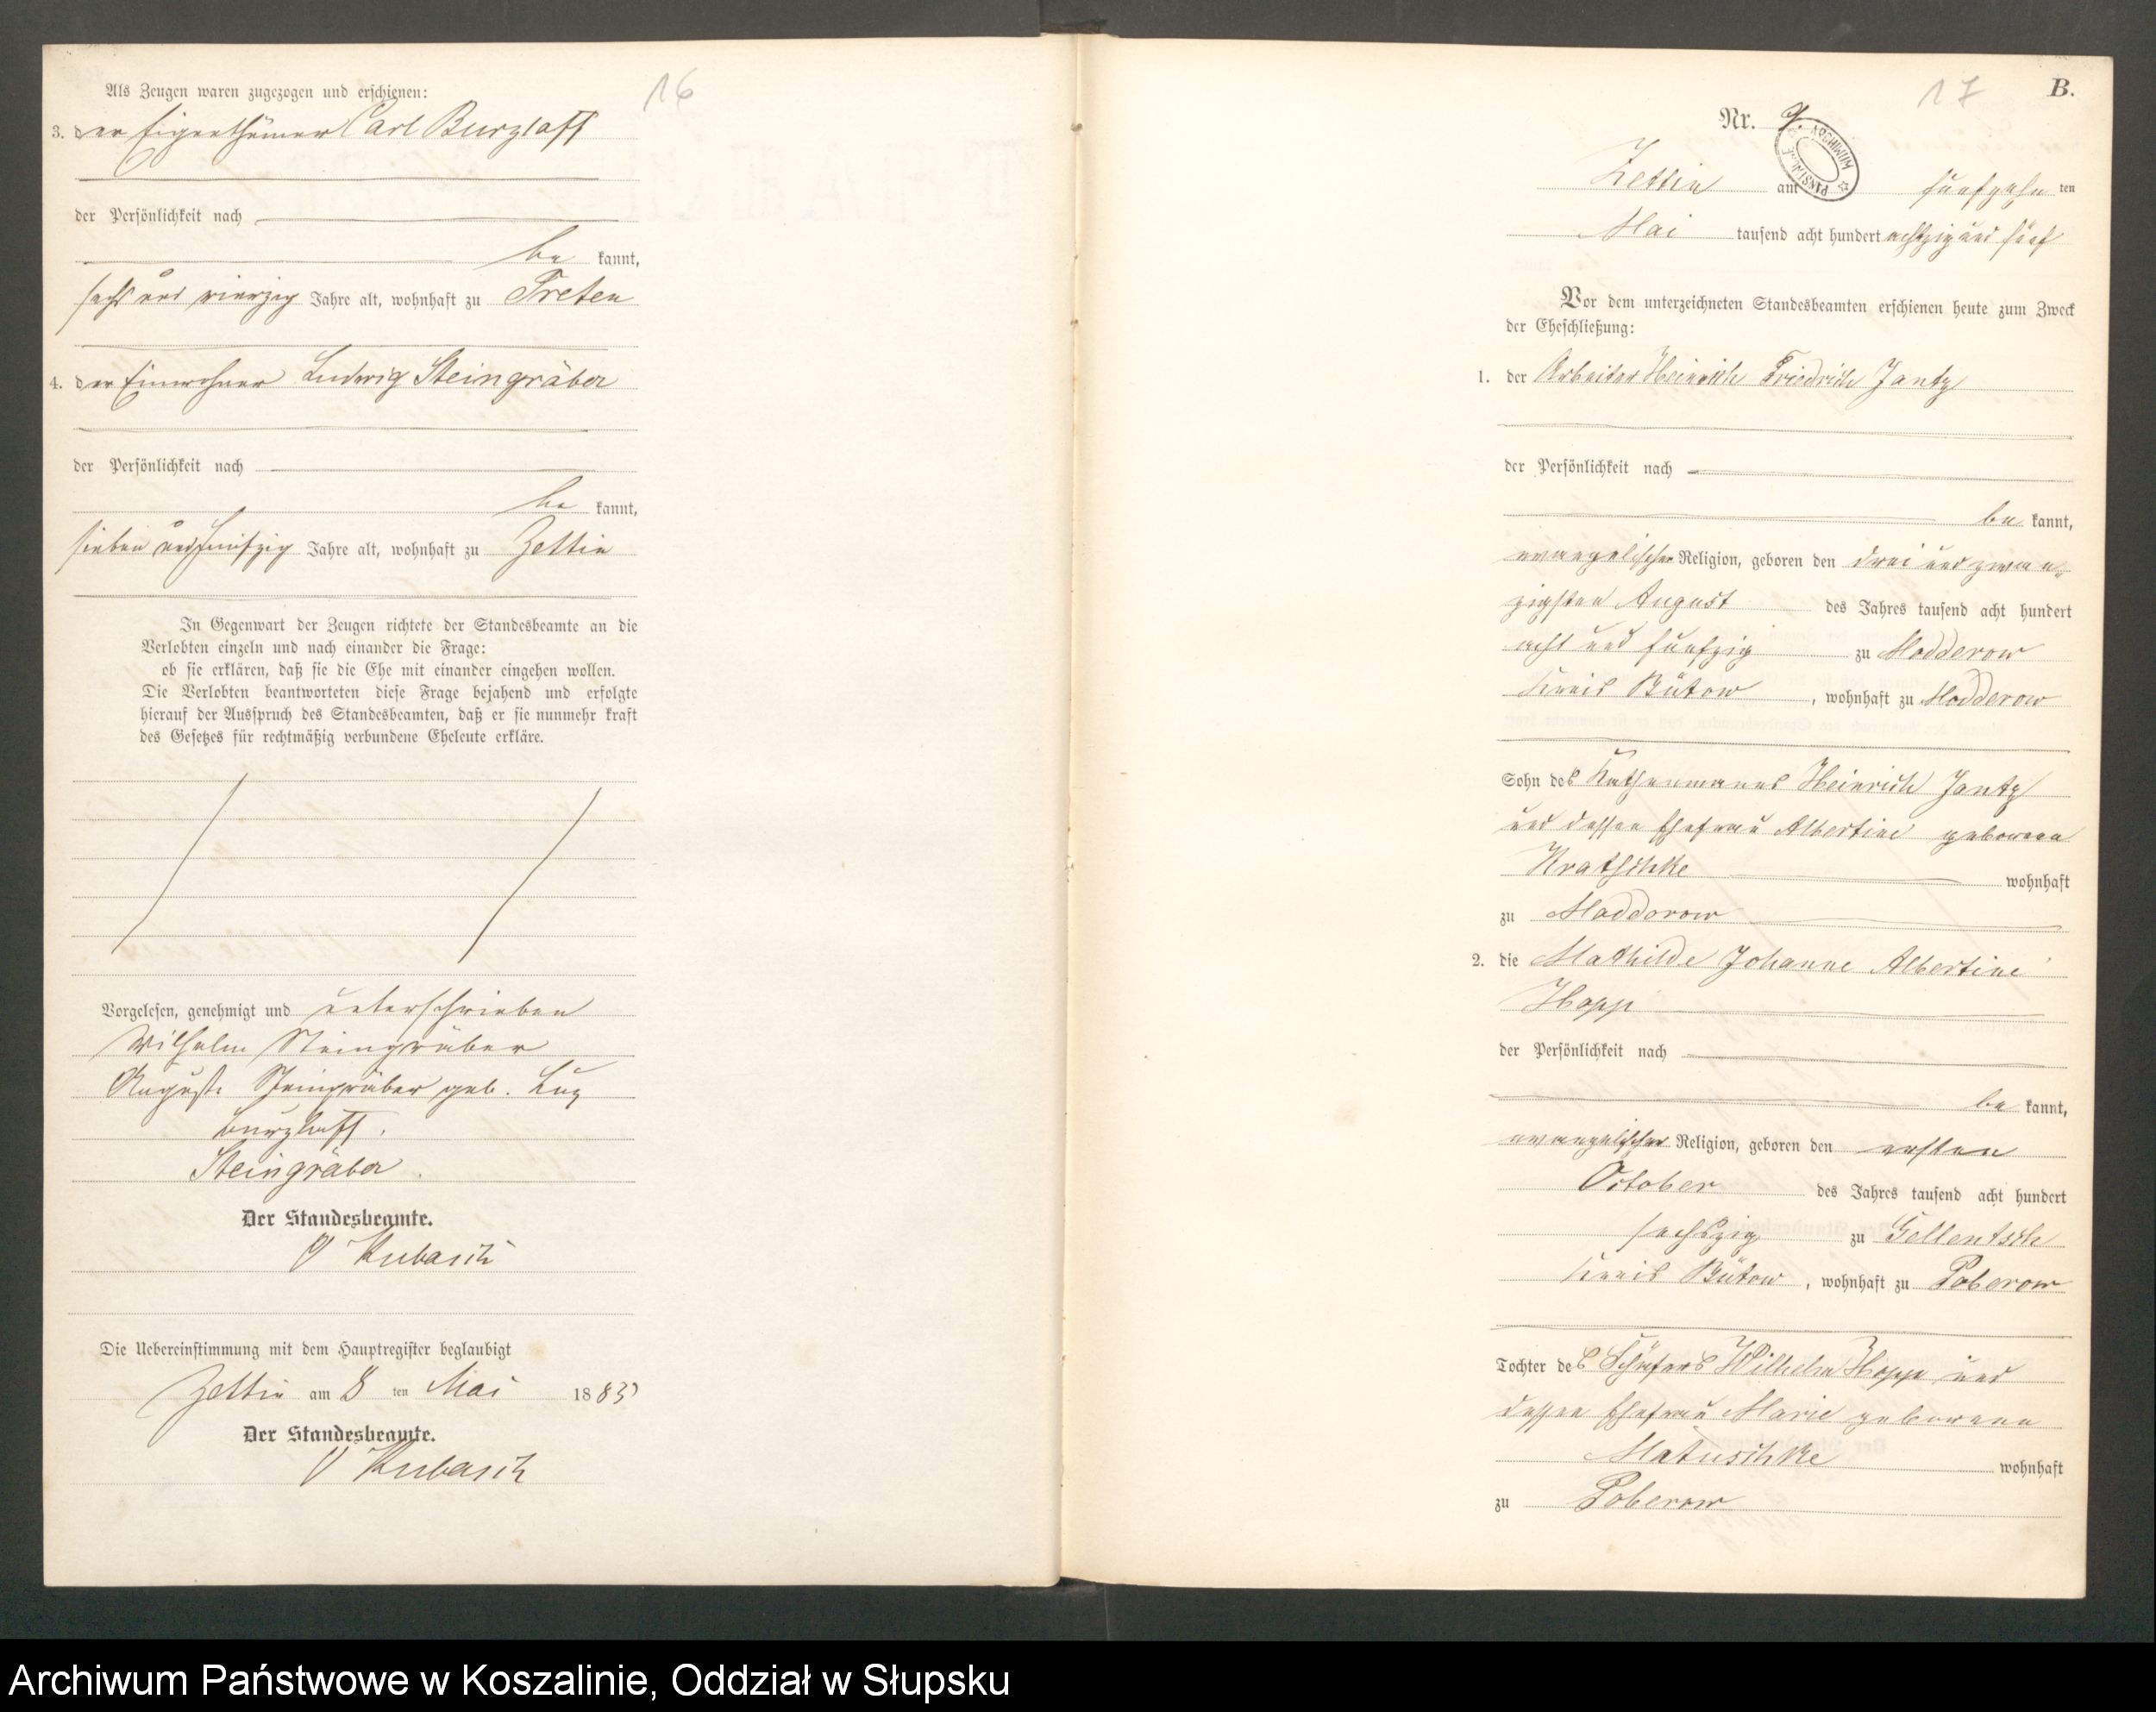 16
Als Zeugen waren zugezogen und erschienen:
3. der Eigenthümer Carl Burzlaff
der Persönlichkeit nach
be kannt,
sechs und vierzig Jahre alt, wohnhaft zu Treten
4. der Einwohner Ludwig Steingräber
der Persönlichkeit nach
be kannt,
sieben und fünfzig Jahre alt, wohnhaft zu Zettin
In Gegenwart der Zeugen richtete der Standesbeamte an die
Verlobten einzeln und nach einander die Frage:
ob sie erklären, daß sie die Ehe mit einander eingehen wollen.
Die Verlobten beantworteten diese Frage bejahend und erfolgte
hierauf der Ausspruch des Standesbeamten, daß er sie nunmehr kraft
des Gesetzes für rechtmäßig verbundene Eheleute erkläre.
Vorgelesen, genehmigt und unterschrieben
Wilhelm Steingräber
Auguste Steingräber geb.
Burzlaff.
Steingräber.
Der Standesbeamte.
Kubasch
Die Uebereinstimmung mit dem Hauptregister beglaubigt
Zettin am 8 ten Mai 1885
Der Standesbeamte.
Kubasch
17
B.
Nr. 9.
ARCHIWUM
Zettin am fünfzehn ten
Mai tausend acht hundert achtzig und fünf
Vor dem unterzeichneten Standesbeamten erschienen heute zum Zweck
der Eheschließung:
1. der Arbeiter Heinrich Friedrich Jantz
der Persönlichkeit nach
be kannt,
evangelischer Religion, geboren den drei und zwan-
zigsten August des Jahres tausend acht hundert
acht und fünfzig zu Modderow
Kreis Bütow, wohnhaft zu Modderow
Sohn des Kathenmannes Heinrich Jantz
und dessen Ehefrau Albertine geborene
Kratschke wohnhaft
zu Modderow
2. die Mathilde Johanne Albertine
Hopp
der Persönlichkeit nach
be kannt,
evangelischer Religion, geboren den ersten
October des Jahres tausend acht hundert
sechszig zu Gellentsch
Kreis Bütow, wohnhaft zu Poberow
Tochter des Schäfers Wilhelm Hopp und
dessen Ehefrau Marie geborene
Matuschke wohnhaft
zu Poberow
Archiwum Państwowe w Koszalinie, Oddział w Słupsku